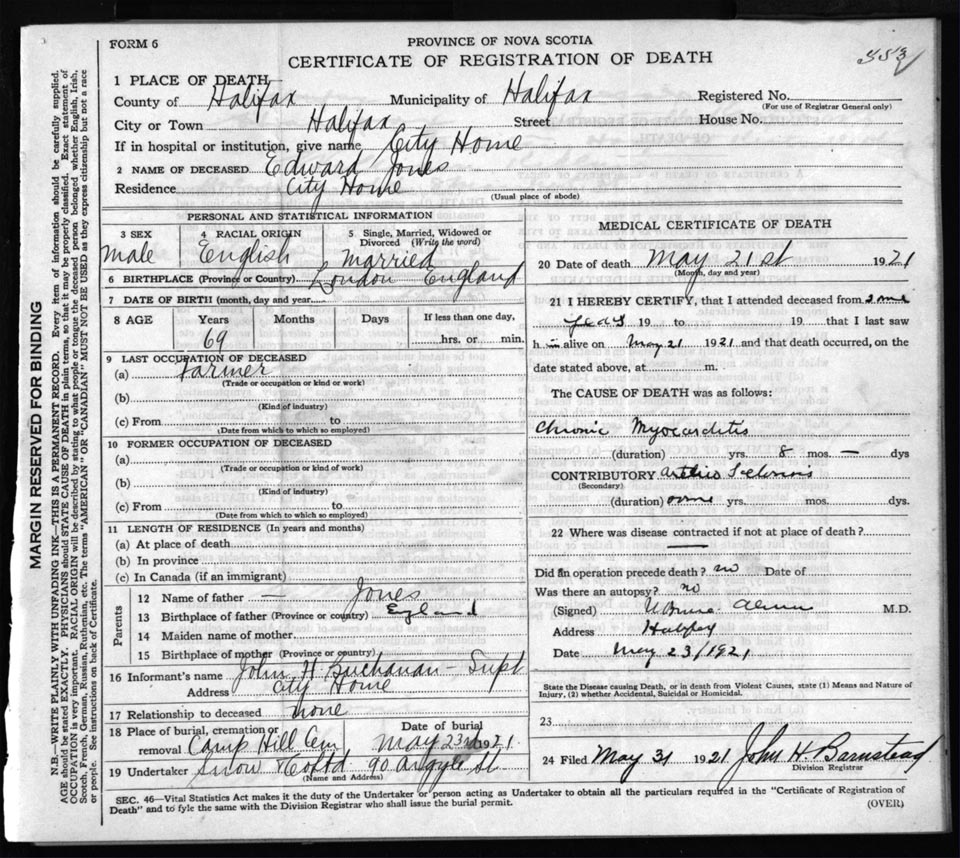 FORM 6
PROVINCE OF NOVA SCOTIA
CERTIFICATE OF REGISTRATION OF DEATH
353
1 PLACE OF DEATH
County of Halifax Municipality of Halifax Registered No.
(For use of Registrar General only)
City or Town Halifax Street House No.
If in hospital or institution, give name City Home
2 NAME OF DECEASED Edward Jones
Residence City Home
(Usual place of abode)
PERSONAL AND STATISTICAL INFORMATION
3 SEX
Male
4 RACIAL ORIGIN
English
5 Single, Married, Widowed or Divorced (Write the word)
Married
6 BIRTHPLACE (Province or Country) London England
7 DATE OF BIRTH (month, day and year)
8 AGE Years Months Days If less than one day,
69 hrs. or min.
9 LAST OCCUPATION OF DECEASED
(a) Farmer
(Trade or occupation or kind or work)
(b)
(Kind of industry)
(c) From to
(Date from which to which so employed)
10 FORMER OCCUPATION OF DECEASED
(a)
(Trade or occupation or kind or work)
(b)
(Kind of industry)
(c) From to
(Date from which to which so employed)
11 LENGTH OF RESIDENCE (In years and months)
(a) At place of death
(b) In province
(c) In Canada (if an immigrant)
Parents
12 Name of father — Jones
13 Birthplace of father (Province or country) England
14 Maiden name of mother
15 Birthplace of mother (Province or country)
16 Informant's name John H Buchanan - Supt
Address City Home
17 Relationship to deceased none
18 Place of burial, cremation or removal Camp Hill Cem
Date of burial
May 23rd 1921
19 Undertaker Snow & Co Ltd 90 Argyle St
(Name and Address)
MEDICAL CERTIFICATE OF DEATH
20 Date of death May 21st 1921
(Month, day and year)
21 I HEREBY CERTIFY, that I attended deceased from some
years 19 to 19 that I last saw
h im alive on May 21 1921 and that death occurred, on the
date stated above, at m.
The CAUSE OF DEATH was as follows:
Chronic Myocarditis
(duration) yrs. 8 mos. — dys
CONTRIBUTORY Arterio Sclerosis
(Secondary)
(duration) some yrs. mos. dys.
22 Where was disease contracted if not at place of death?
—
Did an operation precede death? no Date of
Was there an autopsy? no
(Signed) M.D.
Address Halifax
Date May 23/1921
State the Disease causing Death, or in death from Violent Causes, state (1) Means and Nature of
Injury, (2) whether Accidental, Suicidal or Homicidal.
23
24 Filed May 31 1921 John H. Barnstead
Division Registrar
SEC. 46—Vital Statistics Act makes it the duty of the Undertaker or person acting as Undertaker to obtain all the particulars required in the "Certificate of Registration of
Death" and to fyle the same with the Division Registrar who shall issue the burial permit.
(OVER)
MARGIN RESERVED FOR BINDING
N.B.—WRITE PLAINLY WITH UNFADING INK—THIS IS A PERMANENT RECORD. Every item of information should be carefully supplied.
AGE should be stated EXACTLY. PHYSICIANS should STATE CAUSE OF DEATH in plain terms, so that it may be properly classified. Exact statement of
OCCUPATION is very important. RACIAL ORIGIN will be described by stating to what people or tongue the deceased person belonged whether English, Irish,
Scotch, French, German, Russian, Ruthenian, etc. The terms "AMERICAN" or "CANADIAN" MUST NOT BE USED as they express citizenship but not a race
or people. See instructions on back of Certificate.